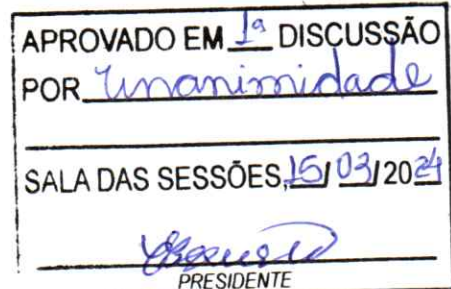 APROVADO EM 1ª DISCUSSÃO
POR Unanimidade
SALA DAS SESSÕES, 15/03/2024
PRESIDENTE